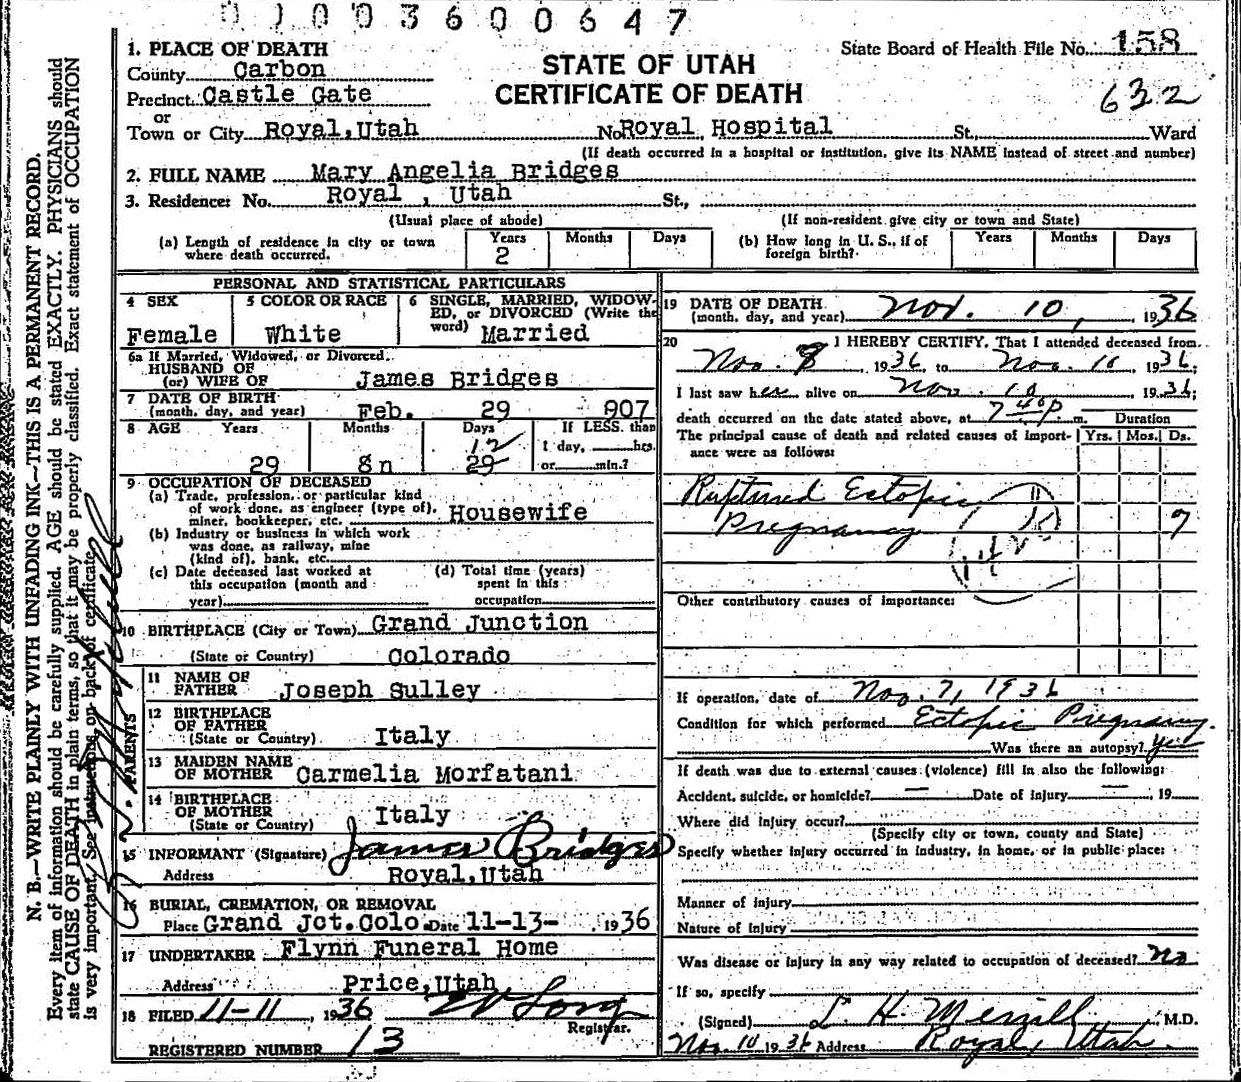 0 1 0 0 3 6 0 0 6 4 7
STATE OF UTAH
CERTIFICATE OF DEATH
State Board of Health File No. 158
632
1. PLACE OF DEATH
County Carbon
Precinct Castle Gate
or
Town or City Royal, Utah No. Royal Hospital St., Ward
(If death occurred in a hospital or institution, give its NAME instead of street and number)
2. FULL NAME Mary Angelia Bridges
3. Residence: No. Royal, Utah St.,
(Usual place of abode) (If non-resident give city or town and State)
(a) Length of residence in city or town where death occurred. Years 2 Months Days
(b) How long in U. S., if of foreign birth? Years Months Days
PERSONAL AND STATISTICAL PARTICULARS
4 SEX Female
5 COLOR OR RACE White
6 SINGLE, MARRIED, WIDOWED, or DIVORCED (Write the word) Married
6a If Married, Widowed, or Divorced.
HUSBAND OF
(or) WIFE OF James Bridges
7 DATE OF BIRTH
(month, day, and year) Feb. 29 907
8 AGE Years Months Days If LESS than
29 8n 12 29 1 day, hrs. or min.?
9 OCCUPATION OF DECEASED
(a) Trade, profession, or particular kind
of work done, as engineer (type of),
miner, bookkeeper, etc. Housewife
(b) Industry or business in which work
was done, as railway, mine
(kind of), bank, etc.
(c) Date deceased last worked at
this occupation (month and
year)
(d) Total time (years)
spent in this
occupation
10 BIRTHPLACE (City or Town) Grand Junction
(State or Country) Colorado
PARENTS
11 NAME OF FATHER Joseph Sulley
12 BIRTHPLACE OF FATHER
(State or Country) Italy
13 MAIDEN NAME OF MOTHER Carmelia Morfatani
14 BIRTHPLACE OF MOTHER
(State or Country) Italy
15 INFORMANT (Signature) James Bridges
Address Royal, Utah
16 BURIAL, CREMATION, OR REMOVAL
Place Grand Jct. Colo. Date 11-13- 1936
17 UNDERTAKER Flynn Funeral Home
Address Price, Utah
18 FILED 11-11, 1936 Long
Registrar.
REGISTERED NUMBER 13
19 DATE OF DEATH
(month, day, and year) Nov. 10, 1936
20 I HEREBY CERTIFY, That I attended deceased from
Nov. 8, 1936 to Nov. 10, 1936;
I last saw her alive on Nov. 10 1936;
death occurred on the date stated above, at 7 40 p m. Duration
The principal cause of death and related causes of importance were as follows: Yrs. Mos. Ds.
Ruptured Ectopic
Pregnancy 7
Other contributory causes of importance:
If operation, date of Nov. 7, 1936
Condition for which performed Ectopic Pregnancy.
Was there an autopsy? Yes
If death was due to external causes (violence) fill in also the following:
Accident, suicide, or homicide? — Date of injury — , 19
Where did injury occur?
(Specify city or town, county and State)
Specify whether injury occurred in industry, in home, or in public place:
Manner of injury
Nature of injury
Was disease or injury in any way related to occupation of deceased? No
If so, specify
(Signed) L. H. Merrill, M.D.
Nov. 10 1936 Address Royal, Utah.
N. B.—WRITE PLAINLY WITH UNFADING INK—THIS IS A PERMANENT RECORD.
Every item of information should be carefully supplied. AGE should be stated EXACTLY. PHYSICIANS should
state CAUSE OF DEATH in plain terms, so that it may be properly classified. Exact statement of OCCUPATION
is very important. See instructions on back of certificate.